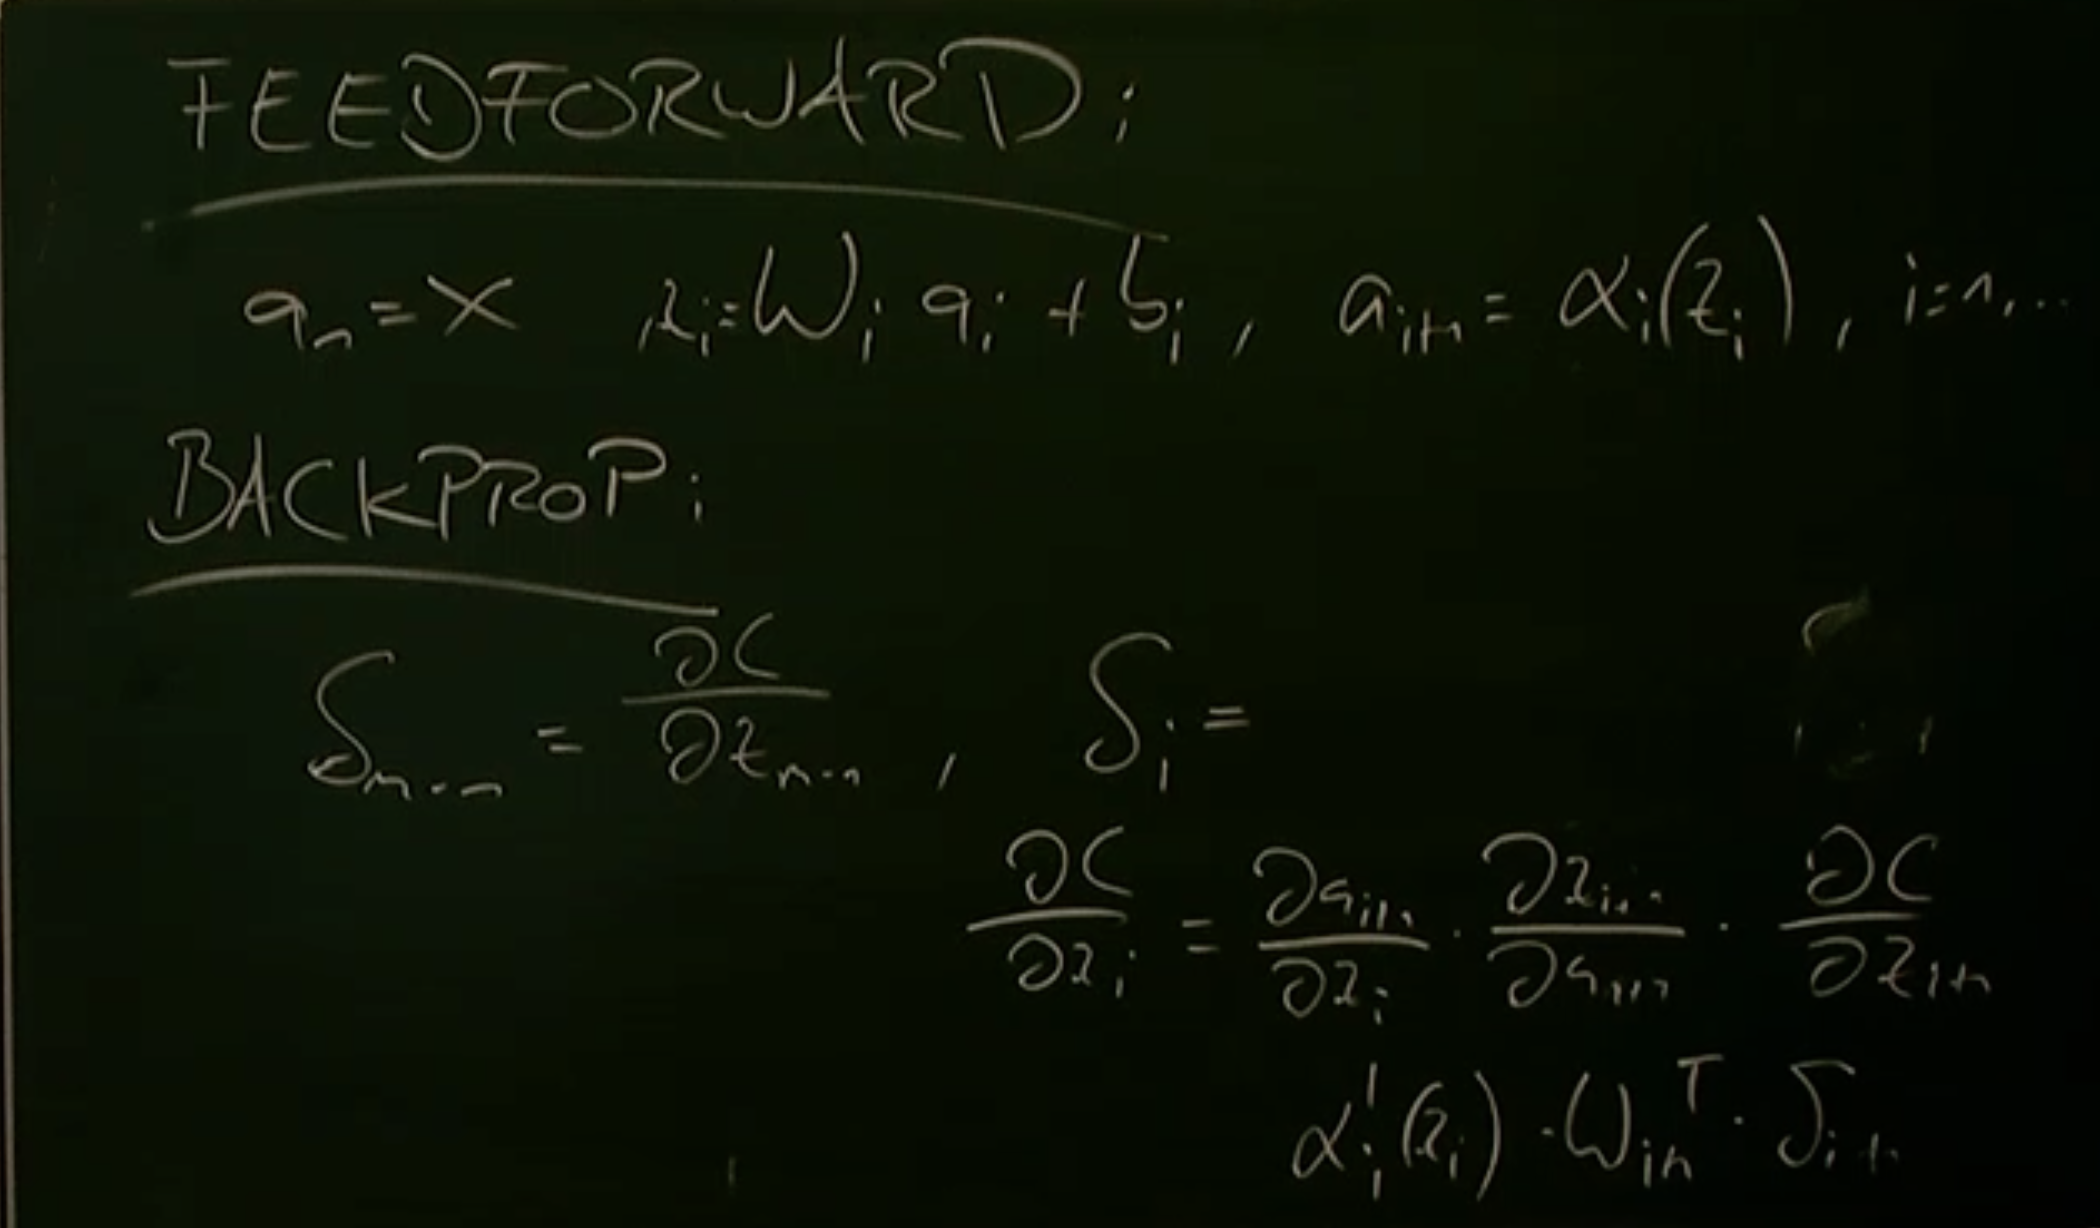 FEEDFORWARD:
a₁ = x   z_i = W_i a_i + b_i , a_{i+1} = α_i(z_i) , i=1,...
BACKPROP:
δ_{n-1} = ∂C/∂z_{n-1} , δ_i =
∂C/∂z_i = ∂a_{i+1}/∂z_i · ∂z_{i+1}/∂a_{i+1} · ∂C/∂z_{i+1}
α'_i(z_i) · W_{i+1}^T · δ_{i+1}